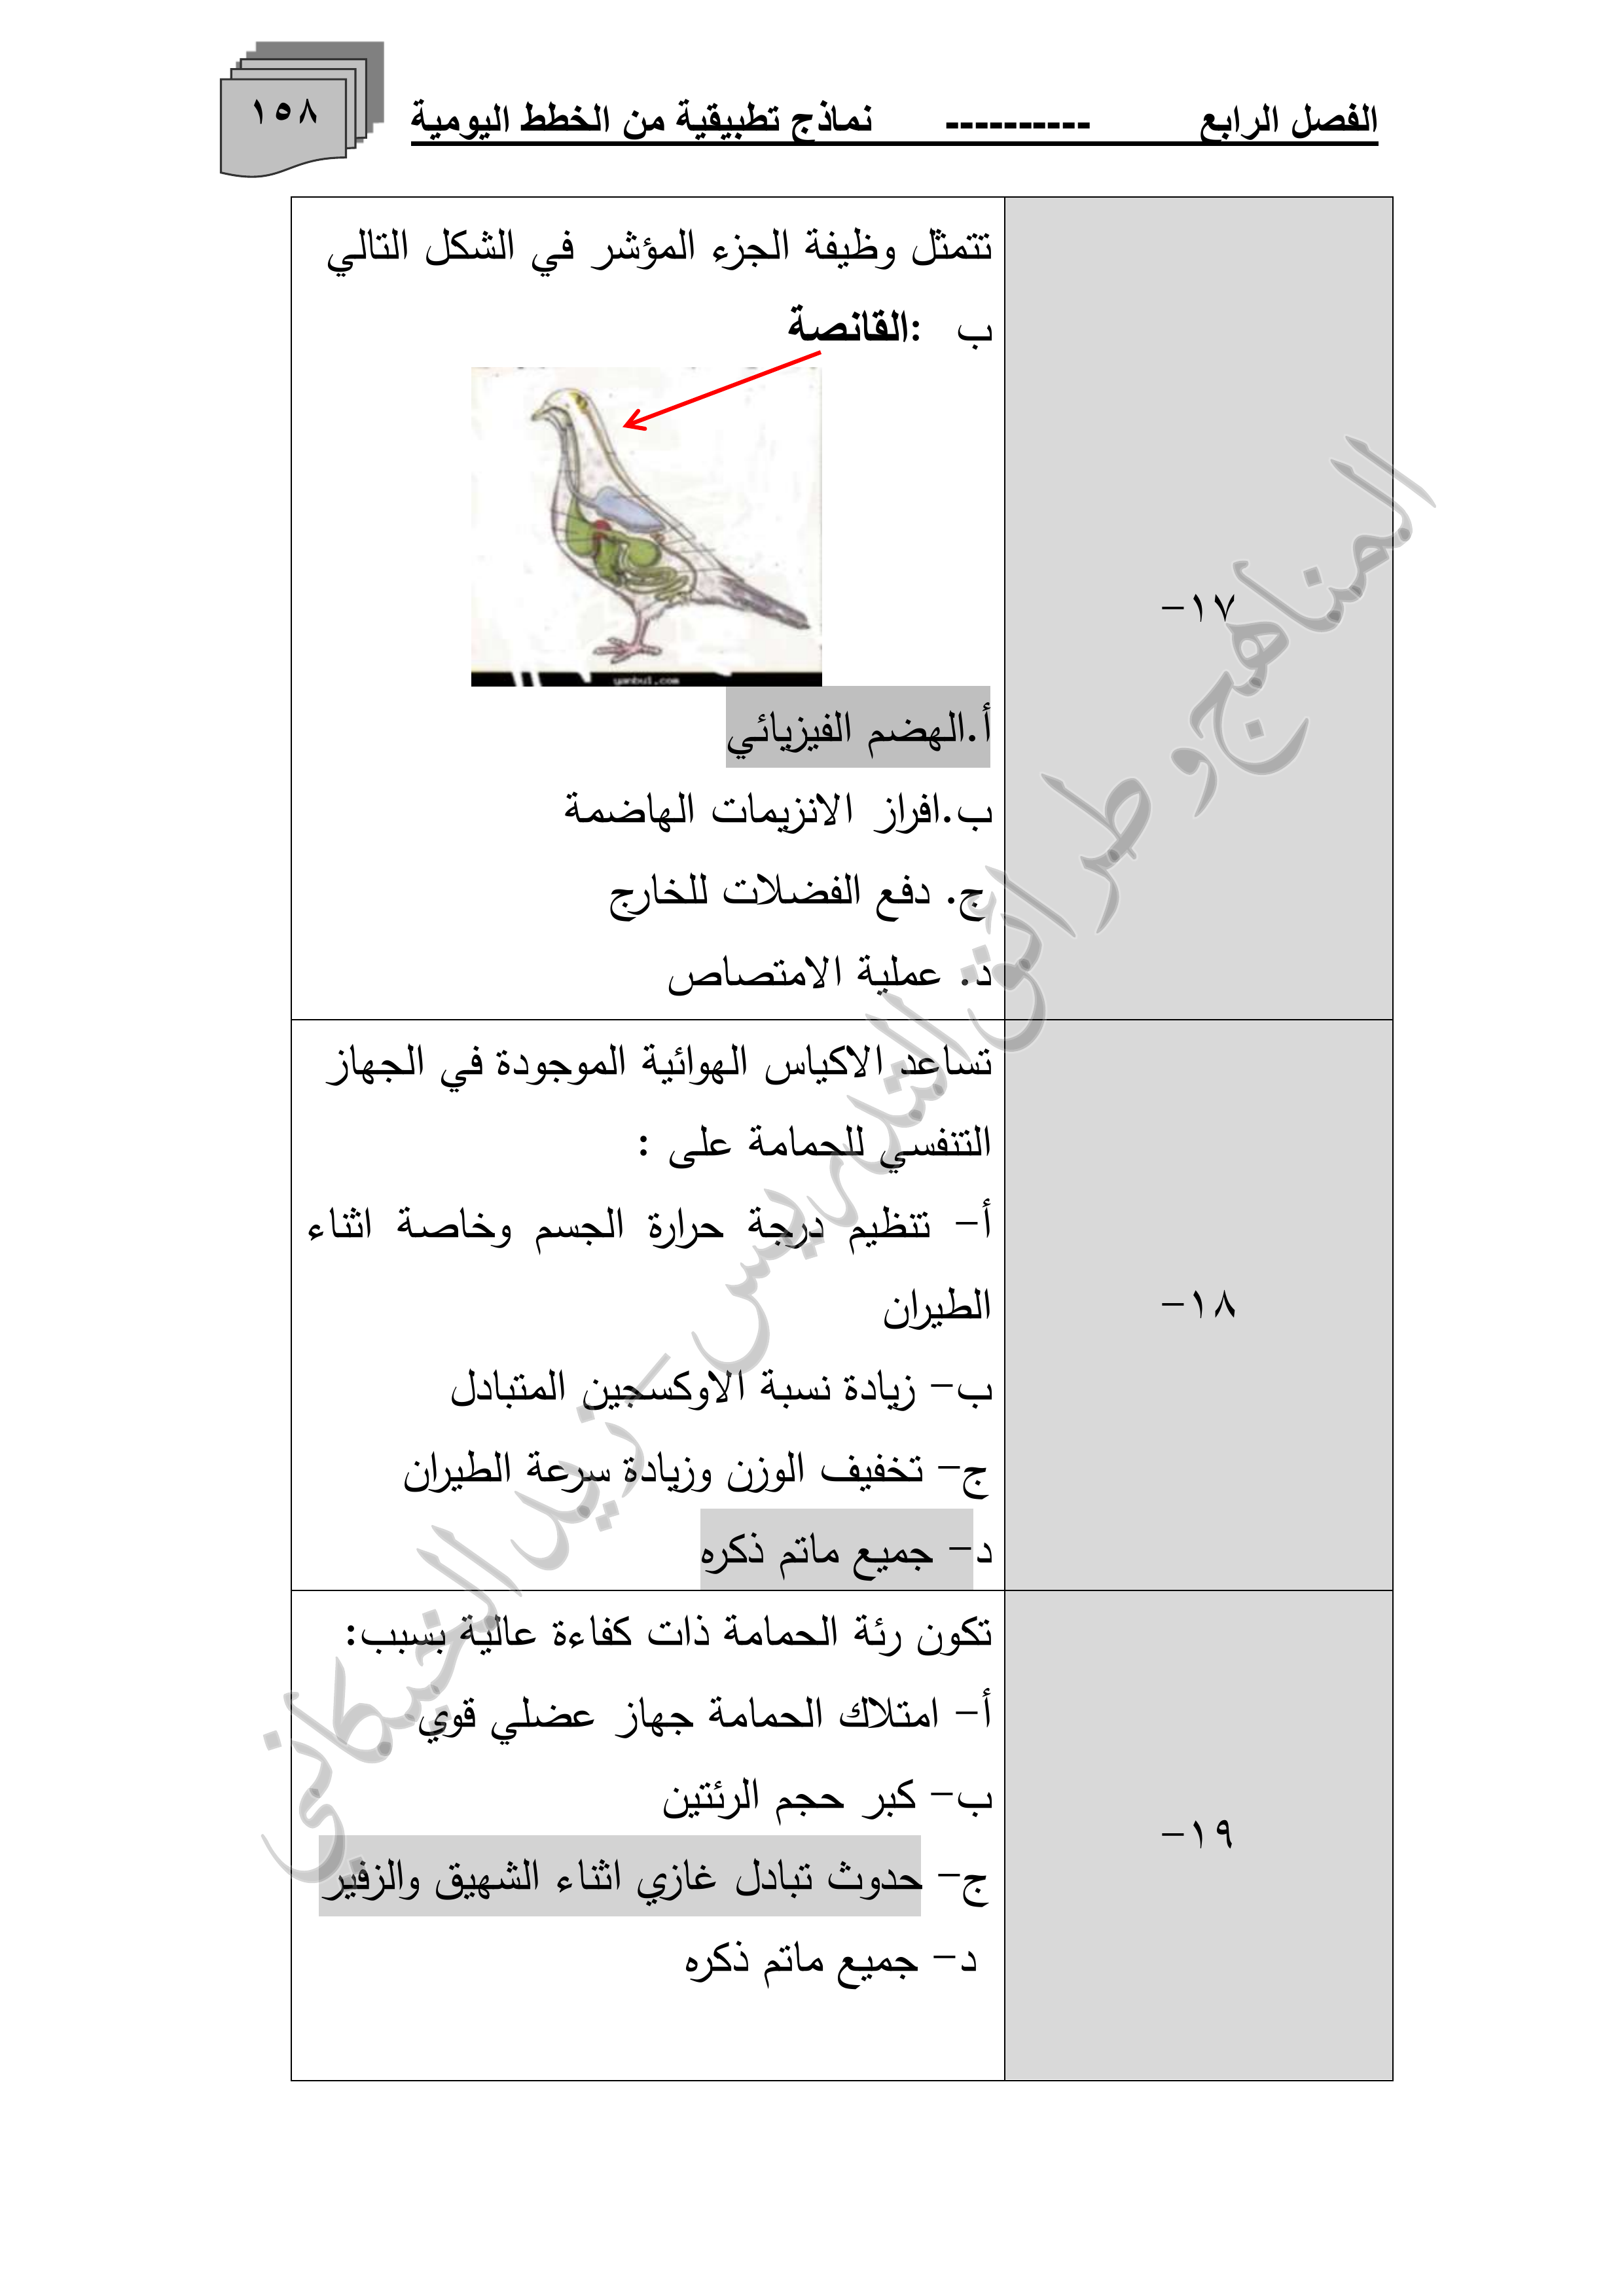 الفصل الرابع ---------- نماذج تطبيقية من الخطط اليومية
١٥٨
١٧-
تتمثل وظيفة الجزء المؤشر في الشكل التالي
ب :القانصة
yanbu1.com
أ.الهضم الفيزيائي
ب.افراز الانزيمات الهاضمة
ج. دفع الفضلات للخارج
د. عملية الامتصاص
١٨-
تساعد الاكياس الهوائية الموجودة في الجهاز
التنفسي للحمامة على :
أ- تنظيم درجة حرارة الجسم وخاصة اثناء
الطيران
ب- زيادة نسبة الاوكسجين المتبادل
ج- تخفيف الوزن وزيادة سرعة الطيران
د- جميع ماتم ذكره
١٩-
تكون رئة الحمامة ذات كفاءة عالية بسبب:
أ- امتلاك الحمامة جهاز عضلي قوي
ب- كبر حجم الرئتين
ج- حدوث تبادل غازي اثناء الشهيق والزفير
د- جميع ماتم ذكره
المناهج و طرائق التدريس - زيد الخيكاني